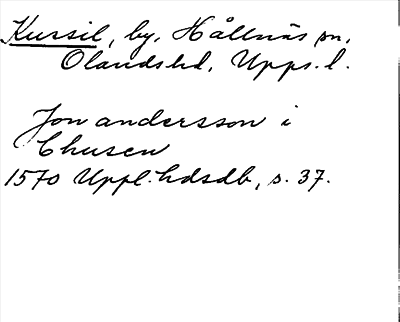 Kursil, by, Hållnäs sn,
Olandshd, Upps. l.
Jon andersson i
Chusen
1570 Uppl. hdsdb, s. 37.